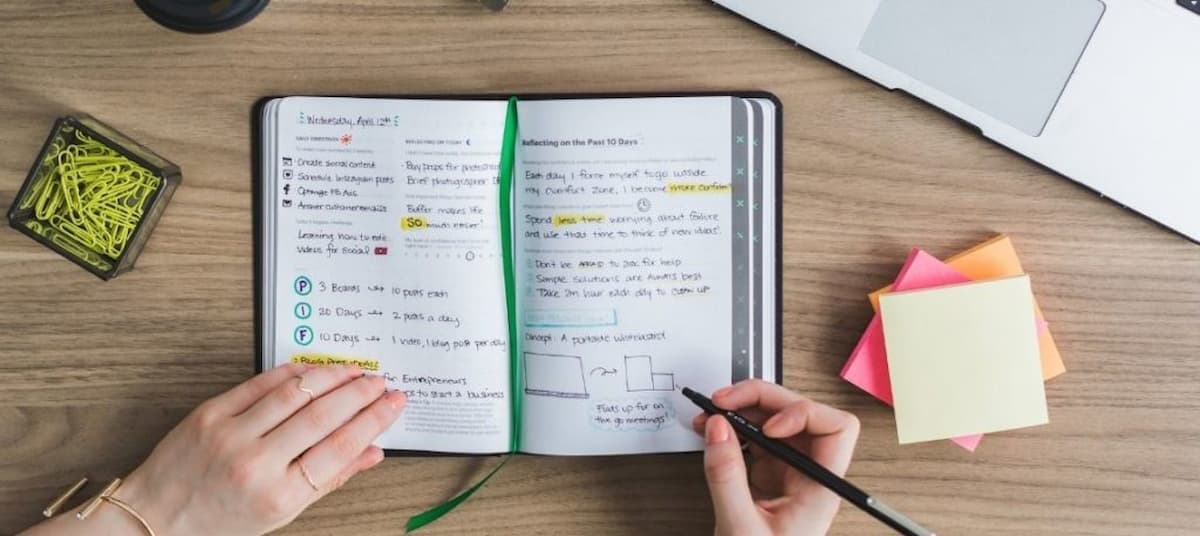 Wednesday, April 12th
DAILY DIRECTION
Create social content
Schedule Instagram posts
Optimize FB Ads
Answer customer emails
Learning how to edit
Videos for Social
P 3 Boards → 10 posts each
I 20 Days → 2 posts a day
F 10 Days → 1 video, 1 blog post per day
Blog Post Ideas
for Entrepreneurs
to start a business
REFLECTING ON TODAY
· Buy props for
· Brief photographer
Buffer makes life
SO much easier!
Reflecting on the Past 10 Days
Each day I force myself to go outside
my comfort zone, I become more
Spend less time worrying about failure
and use that time to think of new ideas!
Don't be AFRAID to ask for help
Simple solutions are ALWAYS best
Take an hour each day to CLEAN UP
Concept: A portable whiteboard
Folds up for on
the go meetings!